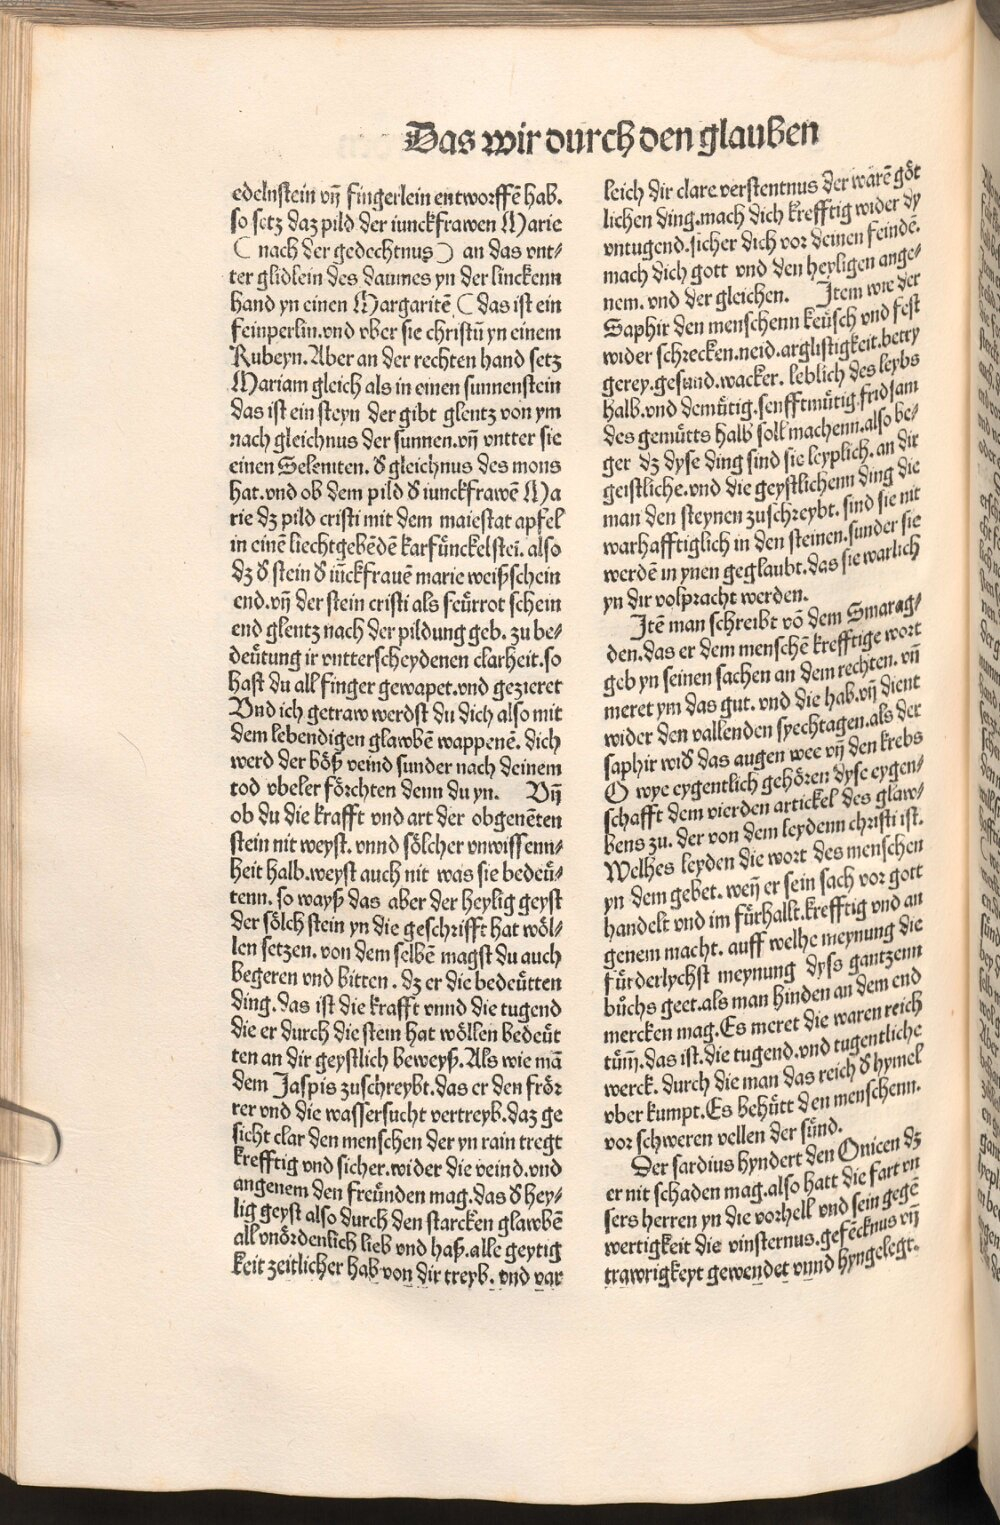 Das wir durch den glauben
edelnstein vn̄ fingerlein entworffē hab.
so setz daz pild der iunckfrawen Marie
( nach der gedechtnus ) an das vnt⸗
ter glidlein des daumes yn der linckenn
hand yn einen Margaritē ( das ist ein
feinperlin. vnd vber sie christū yn einem
Rubeyn. Aber an der rechten hand setz
Mariam gleich als in einen sunnenstein
das ist ein steyn der gibt glentz von ym
nach gleichnus der sunnen. vn̄ vntter sie
einen Seleniten. d̕ gleichnus des mons
hat. vnd ob dem pild d̕ iunckfrawē Ma
rie dz pild cristi mit dem maiestat apfel
in einē liechtgebēdē karfünckelstei. also
dz d̕ stein d̕ iūckfrauē marie weiß schein
end. vn̄ der stein cristi als feürrot schein
end glentz nach der pildung geb. zu be⸗
deütung ir vntterscheydenen clarheit. so
hast du all finger gewapet. vnd gezieret
Vnd ich getraw werdst du dich also mit
dem lebendigen glawbē wappenē. dich
werd der böß veind sunder nach deinem
tod vbeler förchten denn du yn. Vn̄
ob du die krafft vnd art der obgenēten
stein nit weyst. vnnd sölcher vnwissenn⸗
heit halb. weyst auch nit was sie bedeü⸗
tenn. so wayß das aber der heylig geyst
der sölch stein yn die geschrifft hat wöl⸗
len setzen. von dem selbē magst du auch
begeren vnd bitten. dz er die bedeütten
ding. das ist die krafft vnnd die tugend
die er durch die stein hat wöllen bedeüt
ten an dir geystlich beweyß. Als wie mā
dem Jaspis zuschreybt. das er den frör
rer vnd die wassersucht vertreyb. daz ge
sicht clar den menschen der yn rain tregt
krefftig vnd sicher. wider die veind. vnd
angenem den freünden mag. das d̕ hey⸗
lig geyst also durch den starcken glawbē
all vnördenlich lieb vnd haß. alle geytig
keit zeitlicher hab von dir treyb. vnd var
leich dir clare verstentnus der warē göt
lichen ding. mach dich krefftig wider dy
vntugend. sicher dich vor deinen feindē.
mach dich gott vnd den heyligen ange⸗
nem. vnd der gleichen. Item wie der
Saphir den menschenn keüsch vnd fest
wider schrecken. neid. arglistigkeit. betry
gerey. gesund. wacker. leblich des leybs
halb. vnd demütig. senfftmütig. fridsam
des gemütts halb soll machenn. also be⸗
ger dz dyse ding sind sie leyplich. an dir
geistliche. vnd die geystlichenn ding die
man den steynen zuschreybt. sind sie nit
warhafftiglich in den steinen. sunder sie
werdē in ynen geglaubt. das sie warlich
yn dir volpracht werden.
Itē man schreibt vō dem Smarag⸗
den. das er dem menschē krefftige wort
geb yn seinen sachen an dem rechten. vn̄
meret ym das gut. vnd die hab. vn̄ dient
wider den vallenden syechtagen. als der
saphir wid̕ das augen wee vn̄ den krebs
O wye eygentlich gehören dyse eygen⸗
schafft dem vierden artickel des glaw⸗
bens zu. der von dem leydenn christi ist.
Welhes leyden die wort des menschen
yn dem gebet. wen̄ er sein sach vor gott
handelt vnd im fürhallt. krefftig vnd an
genem macht. auff welhe meynung die
fürderlychst meynung dyss gantzenn
bůchs geet. als man hinden an dem end
mercken mag. Es meret die waren reich
tüm̄. das ist. die tugend. vnd tugentliche
werck. durch die man das reich d̕ hymel
vber kumpt. Es behütt den menschenn.
vor schweren vellen der sünd.
Der sardius hyndert den Onicen dz
er nit schaden mag. also hatt die fart vn
sers herren yn die vorhell vnd sein gegē
wertigkeit die vinsternus. gefēcknus vn̄
trawrigkeyt gewendet vnnd hyngelegt.